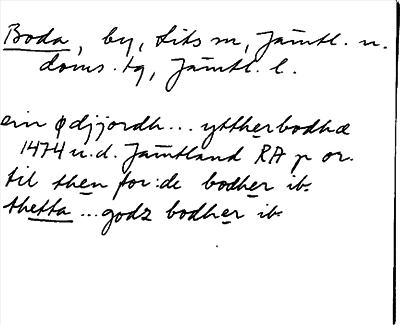 Boda, by, Lits sn, Jämtl. n.
doms. tg, Jämtl. l.
ein ødjjordh... yttherbodhæ
1474 u.d. Jämtland RA p or.
til then for:de bodher ib.
thetta ... godz bodher ib.